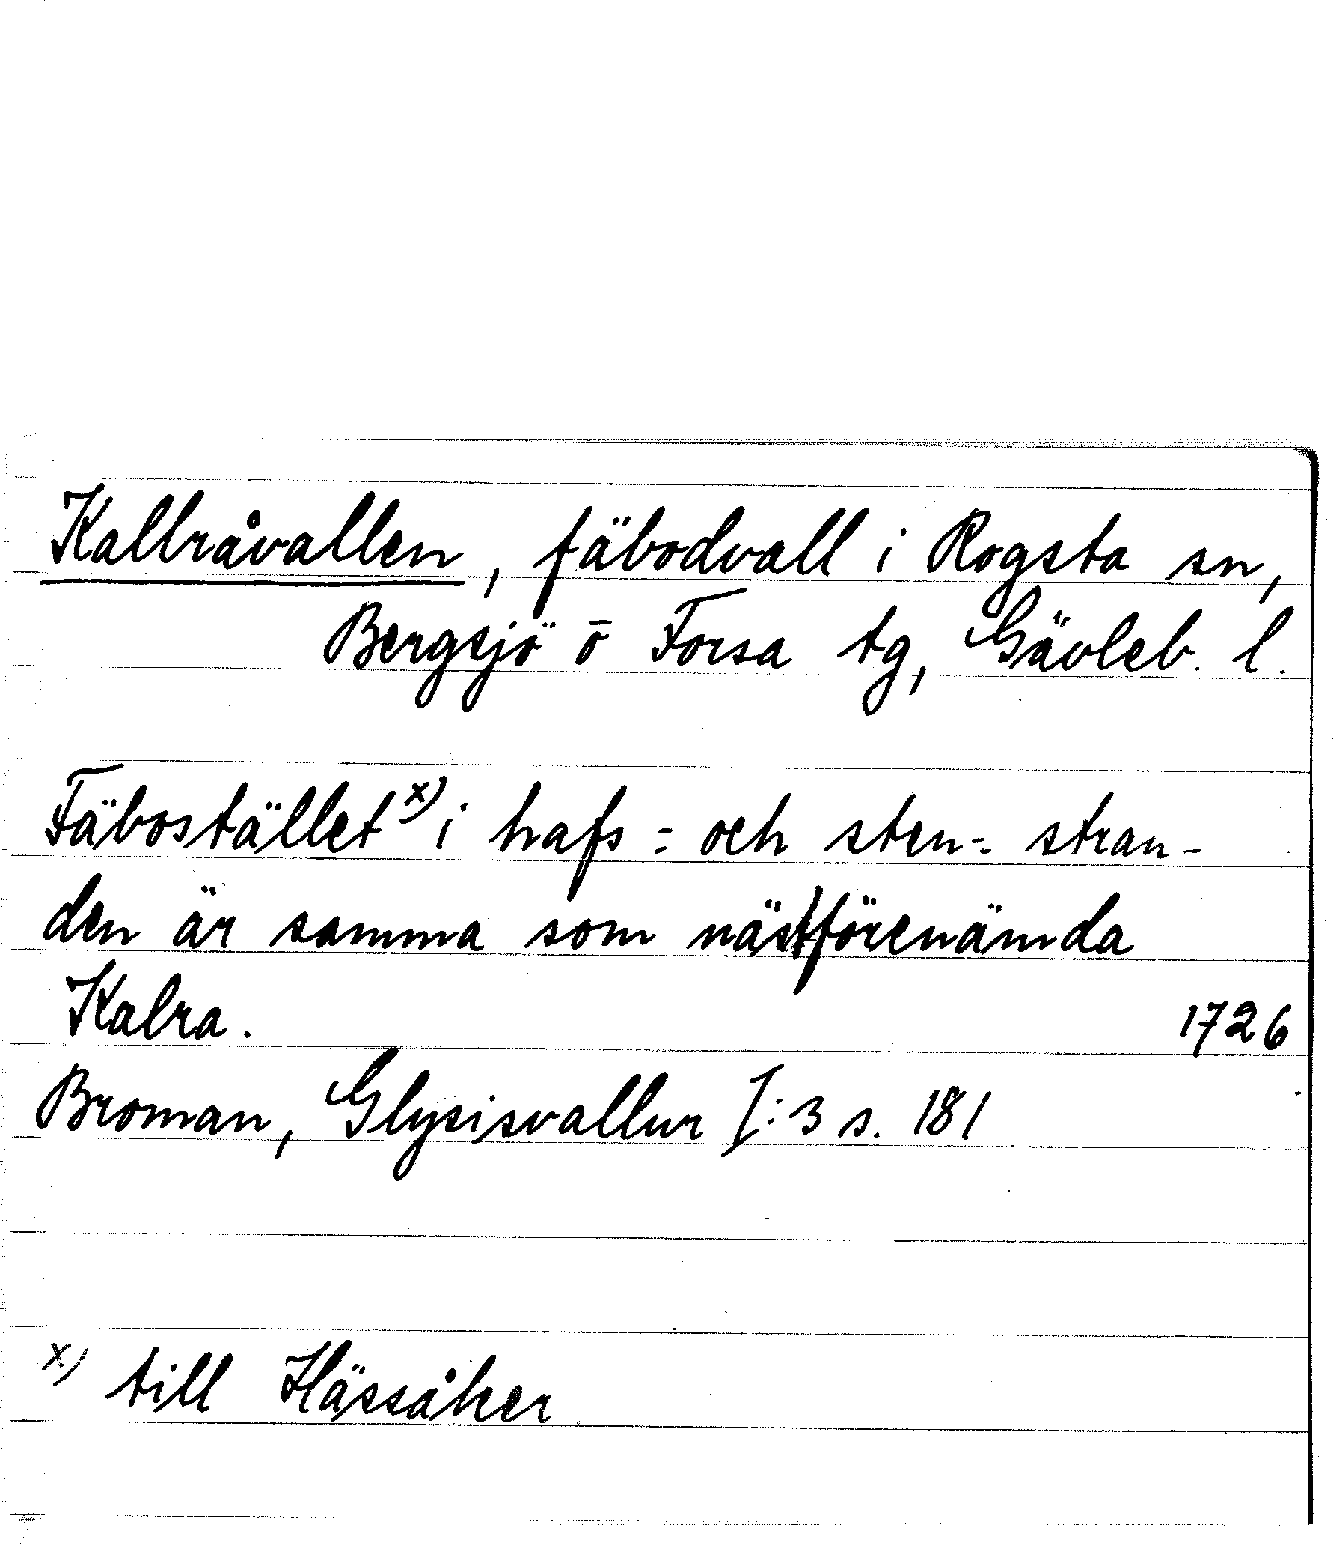 Kallråvallen, fäbodvall i Rogsta sn,
Bergsjö ō Forsa tg, Gävleb. l.
Fäbostället x) i hafs= och sten=. stran-
den är samma som nästförenämda
Kalra.
1726
Broman, Glysisvallur I:3 s. 181
x) till Hässåker